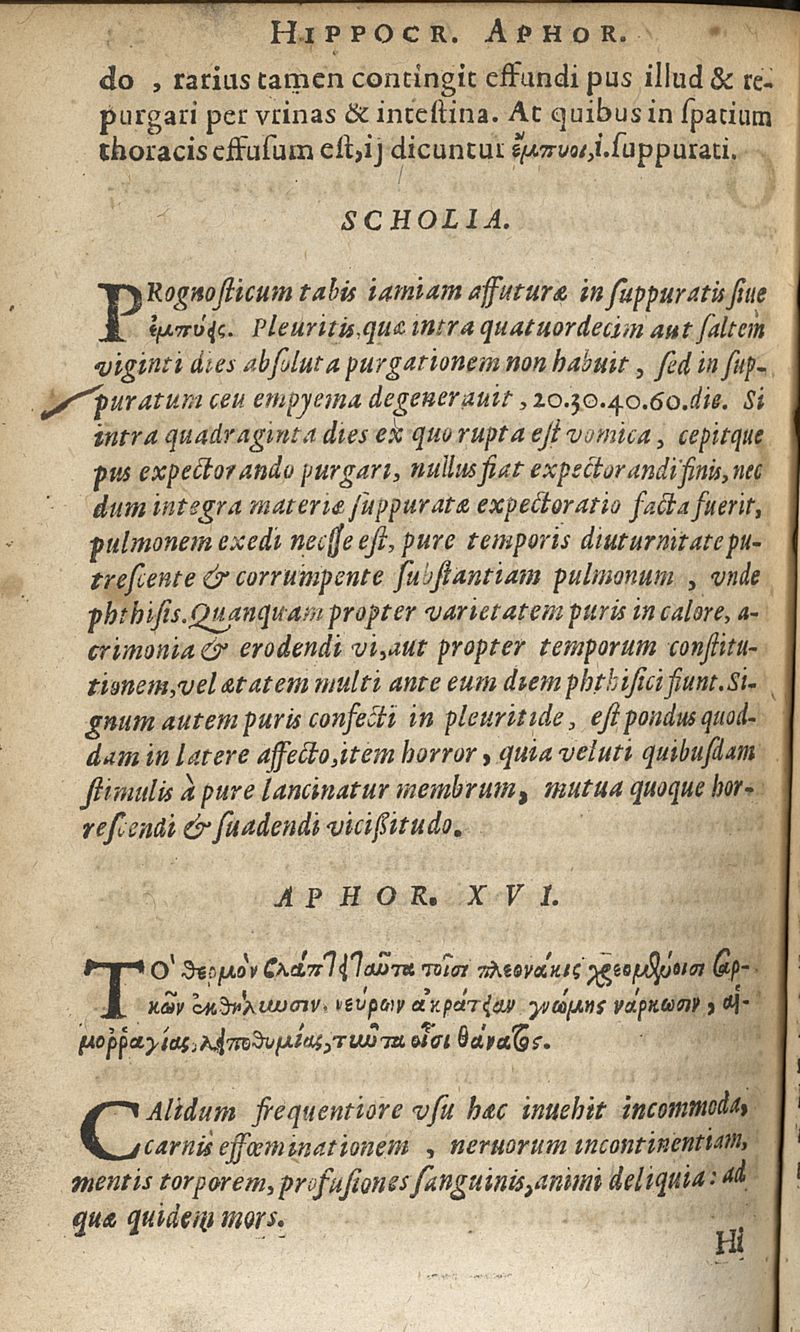 HIPPOCR. APHOR.
do , rarius tamen contingit effundi pus illud & re-
purgari per vrinas & inteſtina. At quibus in ſpatium
thoracis effuſum eſt, ij dicuntur ἔμπυοι, i. ſuppurati.
SCHOLIA.
PRognoſticum tabis iamiam affuturæ in ſuppuratis ſiue
ἐμπύοις. Pleuritis, quæ intra quatuordecim aut ſaltem
viginti dies abſoluta purgationem non habuit , ſed in ſup-
puratum ceu empyema degenerauit , 20.30.40.60. die. Si
intra quadraginta dies ex quo rupta eſt vomica , cepitque
pus expectorando purgari, nullus fiat expectorandi finis, nec
dum integra materiæ ſuppuratæ expectoratio facta fuerit,
pulmonem exedi neceſſe eſt, pure temporis diuturnitate pu-
treſcente & corrumpente ſubſtantiam pulmonum , vnde
phthiſis. Quanquam propter varietatem puris in calore, a-
crimonia & erodendi vi, aut propter temporum conſtitu-
tionem, vel ætatem multi ante eum diem phthiſici fiunt. Si-
gnum autem puris confecti in pleuritide, eſt pondus quod-
dam in latere affecto, item horror , quia veluti quibuſdam
ſtimulis à pure lancinatur membrum, mutua quoque hor-
reſcendi & ſuadendi viciſſitudo.
APHOR. XVI.
ΤΟ' θερμὸν βλάπτει ταῦτα τοῖσι πλεονάκις χρεομένοισι σαρ-
κῶν ἐκθήλυνσιν, νεύρων ἀκράτειαν γνώμης νάρκωσιν , αἱ-
μορῥαγίας, λειποθυμίας, ταῦτα οἷσι θάνατος.
CAlidum frequentiore vſu hæc inuehit incommoda,
carnis effœminationem , neruorum incontinentiam,
mentis torporem, profuſiones ſanguinis, animi deliquia: ad
quæ quidem mors.
Hi